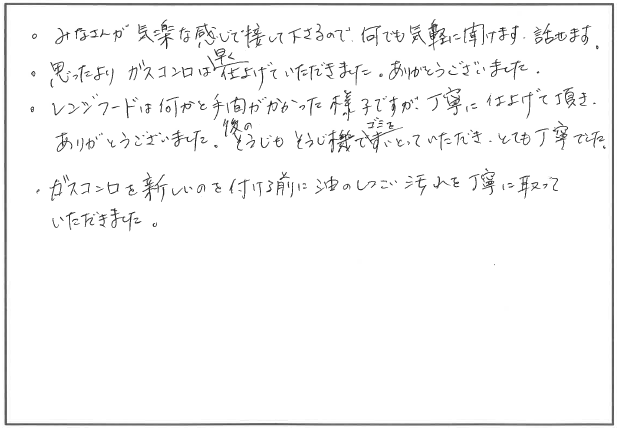 。みなさんが気楽な感じで接して下さるので、何でも気軽に聞けます。話せます。
。思ったよりガスコンロは早く仕上げていただきました。ありがとうございました。
。レンジフードは何かと手間がかかった様子ですが、丁寧に仕上げて頂き、
ありがとうございました。後のそうじもそうじ機でゴミをすいとっていただき、とても丁寧でした。
・ガスコンロを新しいのを付ける前に油のしつこい汚れを丁寧に取って
いただきました。